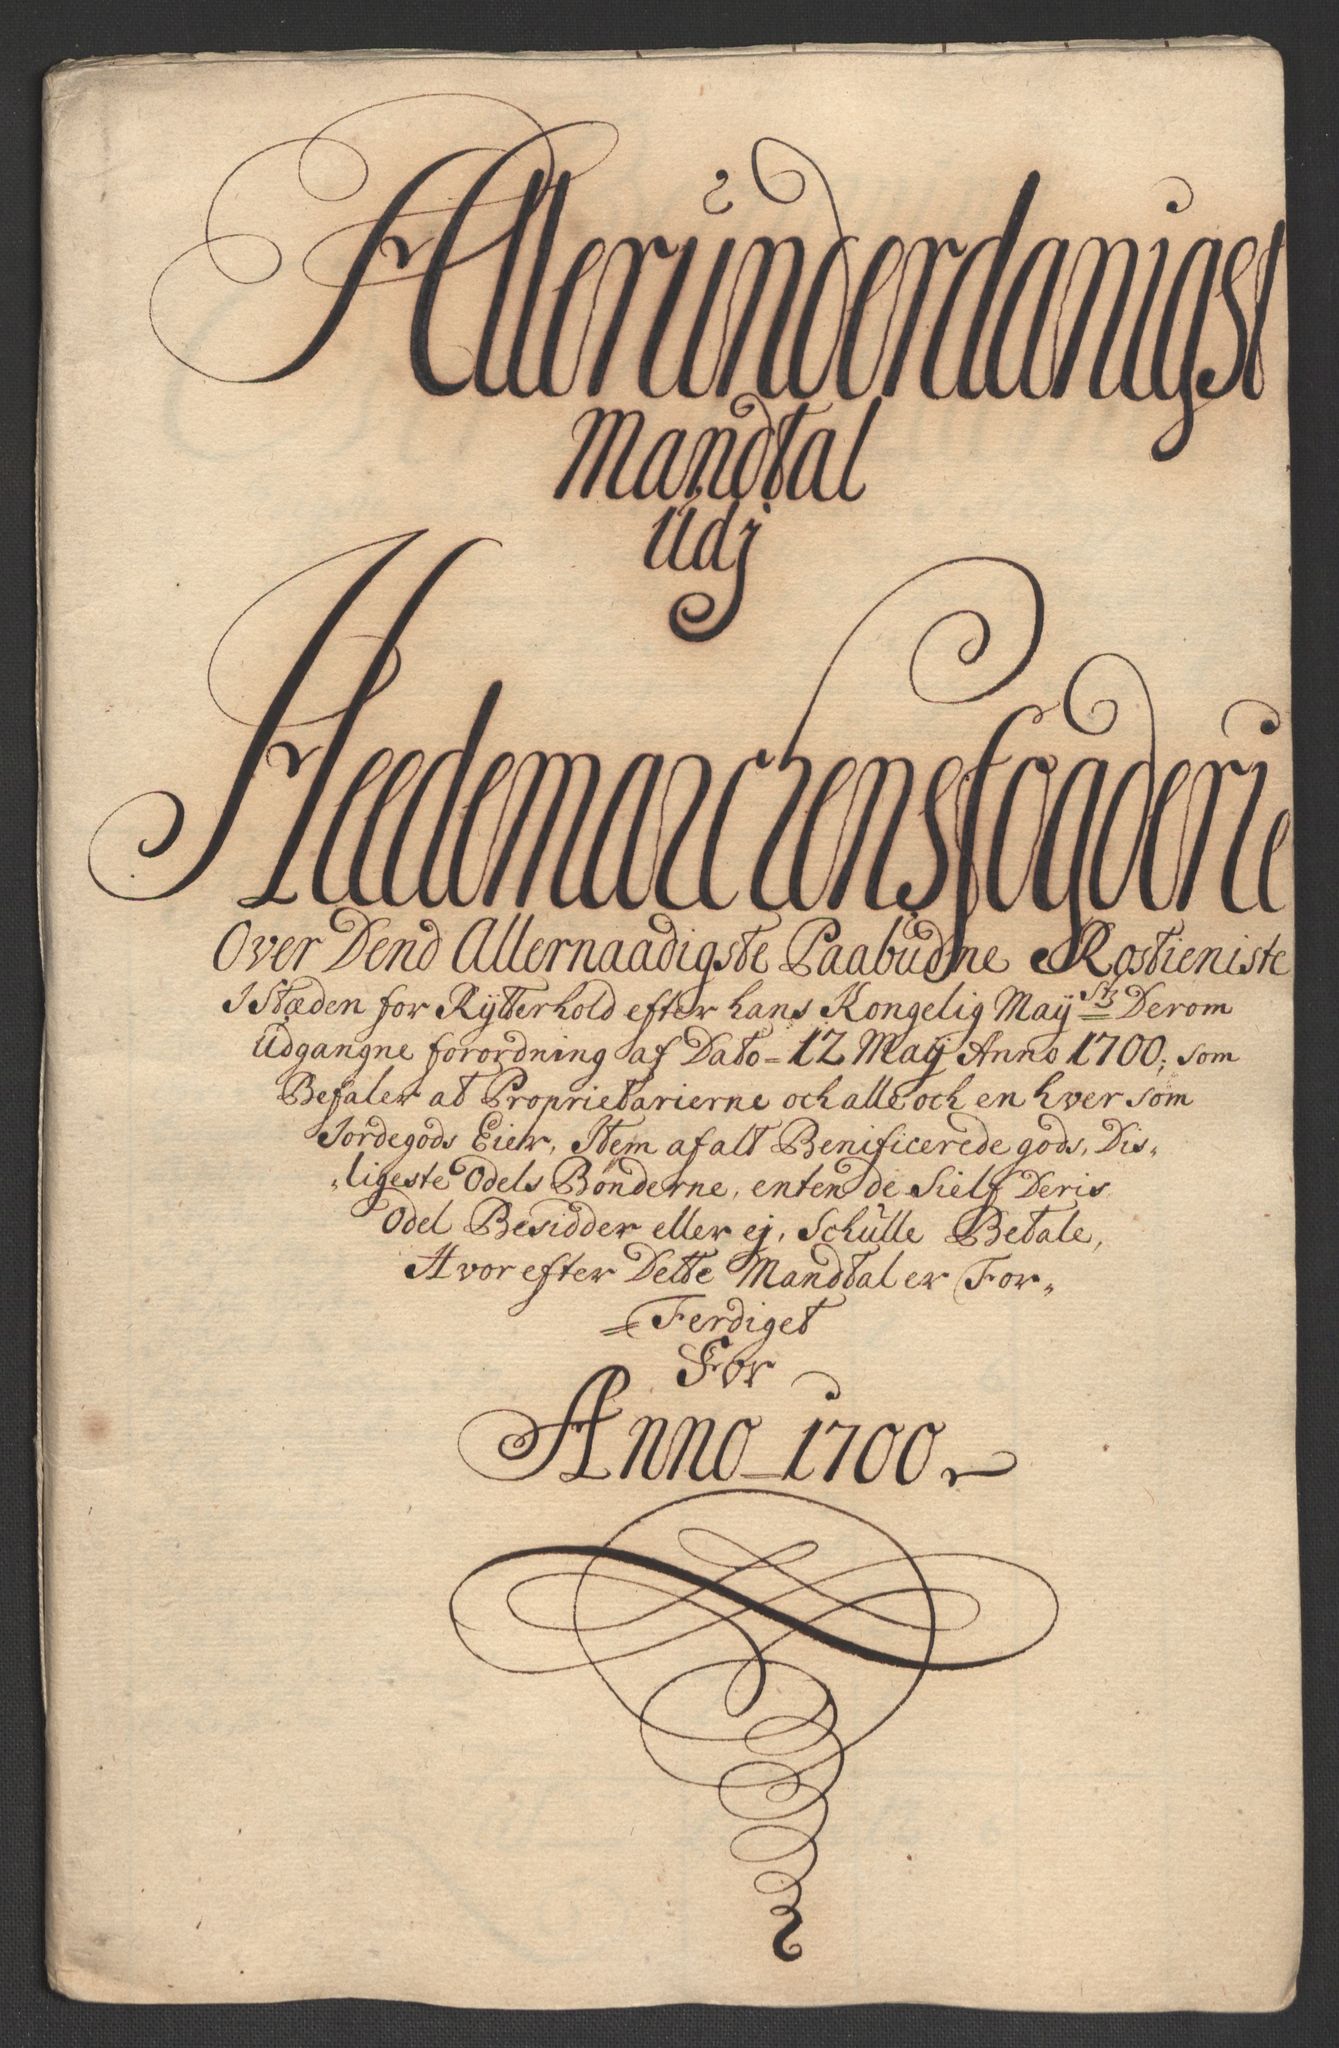 Alleründerdanigst
Mandtal
Udj
Heedemarchens fogderie
Over Dend Allernaadigste Paabüdne Rostieniste
I Stæden for Rÿtterhold efter hans Kongelig Maÿ.sts Derom
Üdgangne forordning af Dato - 12 Maÿ Anno 1700; som
Befaler at Proprietarierne och alle och en hver som
Jordegods Eier, Item af alt Benificerede gods, Dis„
„ligeste Odels Bønderne, enten de Sielf Deris
Odel Besidder eller ej, Schülle Betale,
Hvorefter Dette Mandtal er For„
Ferdiget
For
Anno 1700